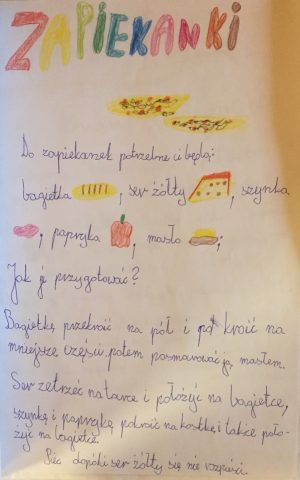 ZAPIEKANKI
Do zapiekanek potrzebne ci będą:
bagietka, ser żółty, szynka
, papryka, masło;
Jak je przygotować?
Bagietkę przekroić na pół i po kroić na
mniejsze części potem posmarować ją masłem.
Ser zetrzeć na tarce i położyć na bagietce,
szynkę i paprykę pokroić na kostkę i także poło-
żyć na bagietce.
Piec dopóki ser żółty się nie rozpuści.